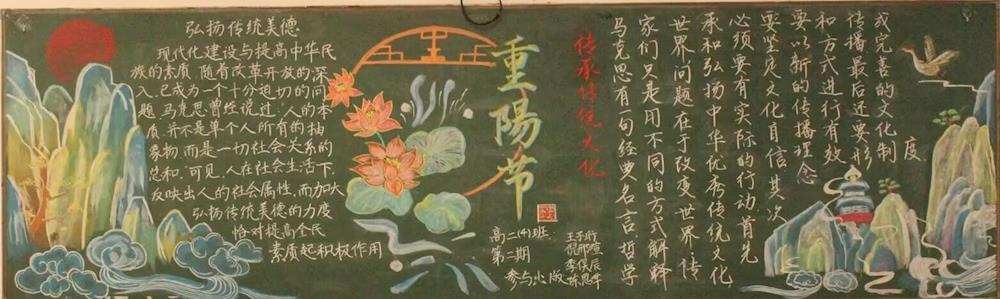 弘扬传统美德
现代化建设与提高中华民
族的素质,随着改革开放的深
入,已成为一个十分迫切的问
题.马克思曾经说过,人的本
质,并不是单个人所有的抽
象物,而是一切社会关系的
总和.可见,人在社会生活下,
反映出人的社会属性,而加大
弘扬传统美德的力度
恰对提高全民
素质起积极作用
重陽节
高二(4)班
第二期
参与出版
传承传统文化
马克思有句经典名言哲学
家们只是用不同的方式解释
世界问题在于改变世界传
承和弘扬中华优秀传统文化
必须要有实际的行动首先
要坚定文化自信其次
要以新的传播理念
和方式进行有效
传播最后还要形
成完善的文化制度